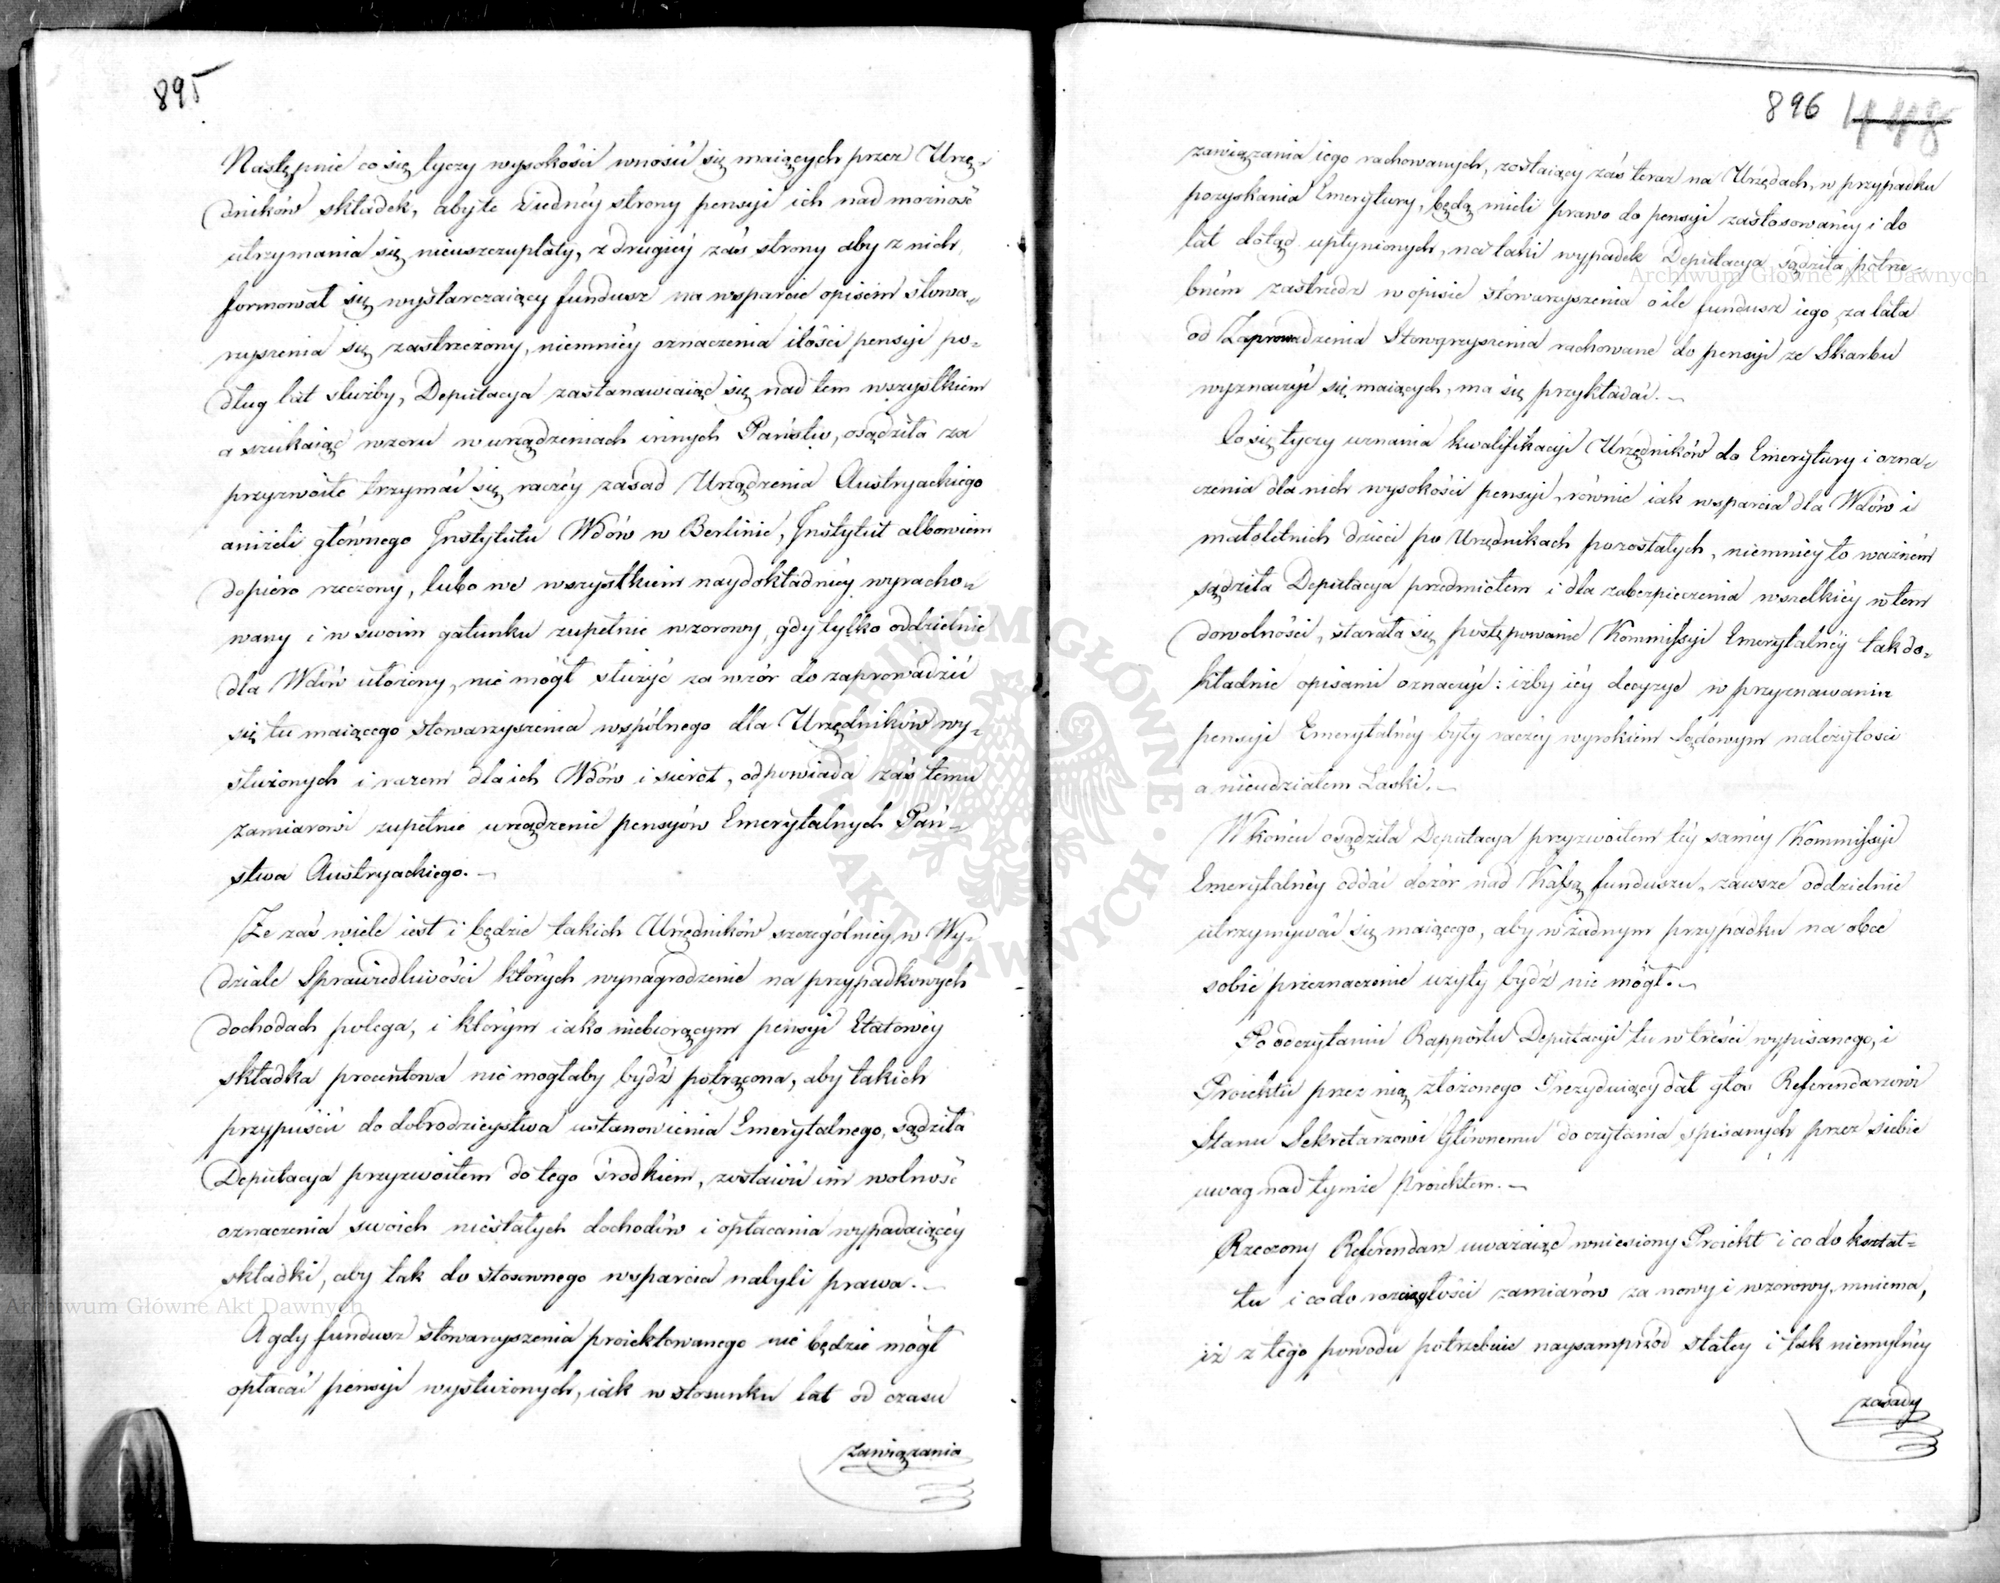 895
Następnie co się tyczy wysokości wnosić się maiących przez Urzę-
dników składek, aby te z iednéy strony pensyi ich nad możność
utrzymania się nieuszczuplały, z drugiéy zaś strony aby z nich
formował się wystarczaiący fundusz na wsparcie opisem stowa-
rzyszenia się zastrzeżony, niemniéy oznaczenia ilości pensyi po-
dług lat służby, Deputacya zastanawiaiąc się nad tem wszystkiem
a szukaiąc wzoru w urządzeniach innych Państw, osądziła za
przyzwoite trzymać się raczéy zasad Urządzenia Austryackiego
aniżeli głównego Instytutu Wdów w Berlinie, Instytut albowiem
dopiero rzeczony, lubo we wszystkiem naydokładniéy wyracho-
wany i w swoim gatunku zupełnie wzorowy, gdy tylko oddzielnie
dla Wdów ułożony, nie mógł służyć za wzór do zaprowadzić
się tu maiącego stowarzyszenia wspólnego dla Urzędników wy-
służonych i razem dla ich Wdów i sierot, odpowiada zaś temu
zamiarowi zupełnie urządzenie pensyów Emerytalnych Pań-
stwa Austryackiego. —
Że zaś wiele iest i będzie takich Urzędników szczególniéy w Wy-
dziale Sprawiedliwości których wynagrodzenie na przypadkowych
dochodach polega, i którym iako niebiorącym pensyi Etatowéy
składka procentowa nie mogłaby bydź potrącona, aby takich
przypuścić do dobrodzieystwa ustanowienia Emerytalnego, sądziła
Deputacya przyzwoitem do tego środkiem, zostawić im wolność
oznaczenia swoich niestałych dochodów i opłacania wypadaiącéy
składki, aby tak do stosownego wsparcia nabyli prawa. —
A gdy fundusz stowarzyszenia proiektowanego nie będzie mógł
opłacać pensyi wysłużonych, iak w stosunku lat od czasu
zawiązania
896 448
zawiązania iego rachowanych, zostaiący zaś teraz na Urzędach, w przypadku
pozyskania Emerytury, będą mieli prawo do pensyi zastosowanéy i do
lat dotąd upłynionych, na taki wypadek Deputacya sądziła potrze-
bném zastrzedz w opisie stowarzyszenia o ile fundusz iego za lata
od Zaprowadzenia Stowarzyszenia rachowane do pensyi ze Skarbu
wyznaczyć się maiących, ma się przykładać. —
Co się tyczy uznania kwalifikacyi Urzędników do Emerytury i ozna-
czenia dla nich wysokości pensyi, równie iak wsparcia dla Wdów i
małoletnich dzieci po Urzędnikach pozostałych, niemniéy to ważném
sądziła Deputacya przedmiotem i dla zabezpieczenia wszelkiéy w tem
dowolności, starała się postępowanie Kommissyi Emerytalnéy tak do-
kładnie opisami oznaczyć: iżby iéy decyzye w przyznawaniu
pensyi Emerytalnéy były raczéy wyrokiem Sądowym należytości
a nieudziałem Łaski. —
W końcu osądziła Deputacya przyzwoitem téy saméy Kommissyi
Emerytalnéy oddać dozór nad Kassą funduszu, zawsze oddzielnie
utrzymywać się maiącego, aby w żadnym przypadku na obce
sobie przeznaczenie użyty bydź nie mógł. —
Po odczytaniu Rapportu Deputacyi tu w treści wypisanego, i
Proiektu przez nią złożonego Prezyduiący dał głos Referendarzowi
Stanu Sekretarzowi Głównemu do czytania spisanych przez siebie
uwag nad tymże Proiektem. —
Rzeczony Referendarz uważaiąc wniesiony Proiekt i co do kształ-
tu i co do rozciągłości zamiarów za nowy i wzorowy, mniema,
iż z tego powodu potrzebuie naysamprzód stałéy i tak niemylnéy
zasady
Archiwum Główne Akt Dawnych
Archiwum Główne Akt Dawnych
ARCHIWUM GŁÓWNE AKT DAWNYCH